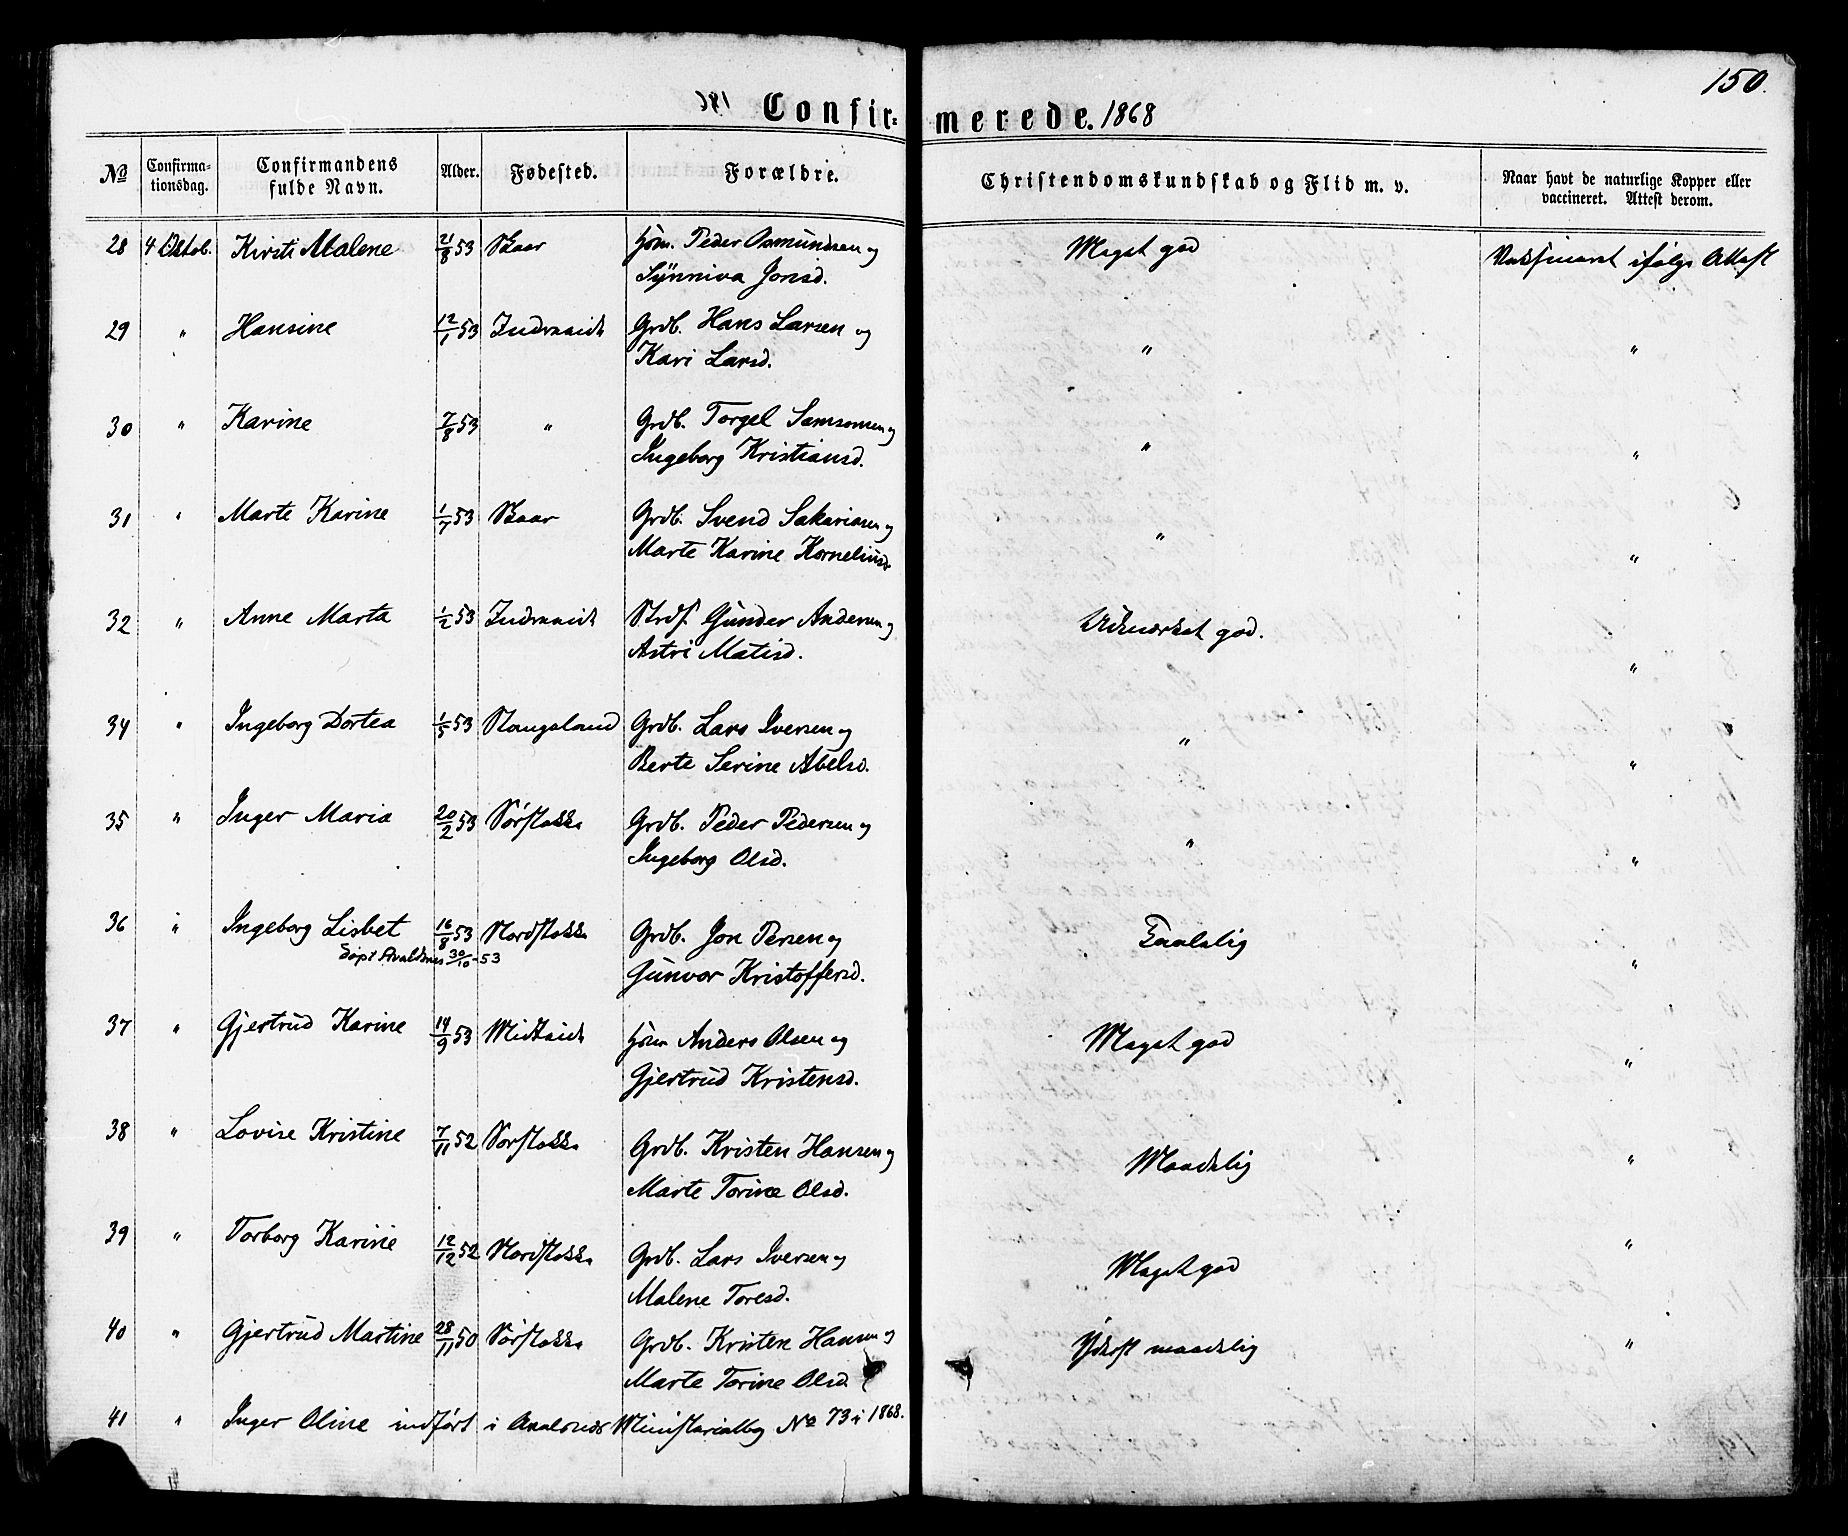 150.
Confir- merede. 1868
No Confirmationsdag. Confirmandens fulde Navn. Alder. Fødested. Forældre. Christendomskundskab og Flid m. v. Naar havt de naturlige Kopper eller vaccineret. Attest derom.
28 4 Oktob. Kirsti Malene 21/8 53 Skaar Hsm. Peder Osmundsen og Meget god Vaksineret ifølge Attest
Synniva Jonsd.
29 " Hansine 12/1 53 Indreeide Grdb. Hans Larsen og " "
Kari Larsd.
30 " Karine 7/8 53 " Grdb. Torgel Samsonsen og " "
Ingeborg Kristiansd.
31 " Marte Karine 1/7 53 Skaar Grdb. Svend Sakariasen og " "
Marte Karine Kornelius
32 " Anne Marta 1/2 53 Indreeide Strdf. Gunder Andersen og Udmærket god. "
Astri Matisd.
34 " Ingeborg Dortea 1/5 53 Stangeland Grdb. Lars Iversen og " "
Berte Serine Abelsd.
35 " Inger Maria 20/2 53 Sørstokke Grdb. Peder Pedersen og " "
Ingeborg Olsd.
36 " Ingeborg Lisbet 16/8 53 Nordstokke Grdb. Jon Persen og Taalelig "
Døpt Avaldsnes 30/10-53
Gunvor Kristoffersd.
37 " Gjertrud Karine 14/9 53 Midteide Hsm Anders Olsen og Meget god "
Gjertrud Kristensd.
38 " Lovise Kristine 7/11 52 Sørstokke Grdb. Kristen Hansen og Maadelig "
Marte Torine Olsd.
39 " Torborg Karine 12/12 52 Nordstokke Grdb. Lars Iversen og Meget god "
Malene Toresd.
40 " Gjertrud Martine 28/11 50 Sørstokke Grdb. Kristen Hansen og Yderst maadelig "
Marte Torine Olsd
41 " Inger Oline indført i Avalsnes Ministerialbog No 73 i 1868.